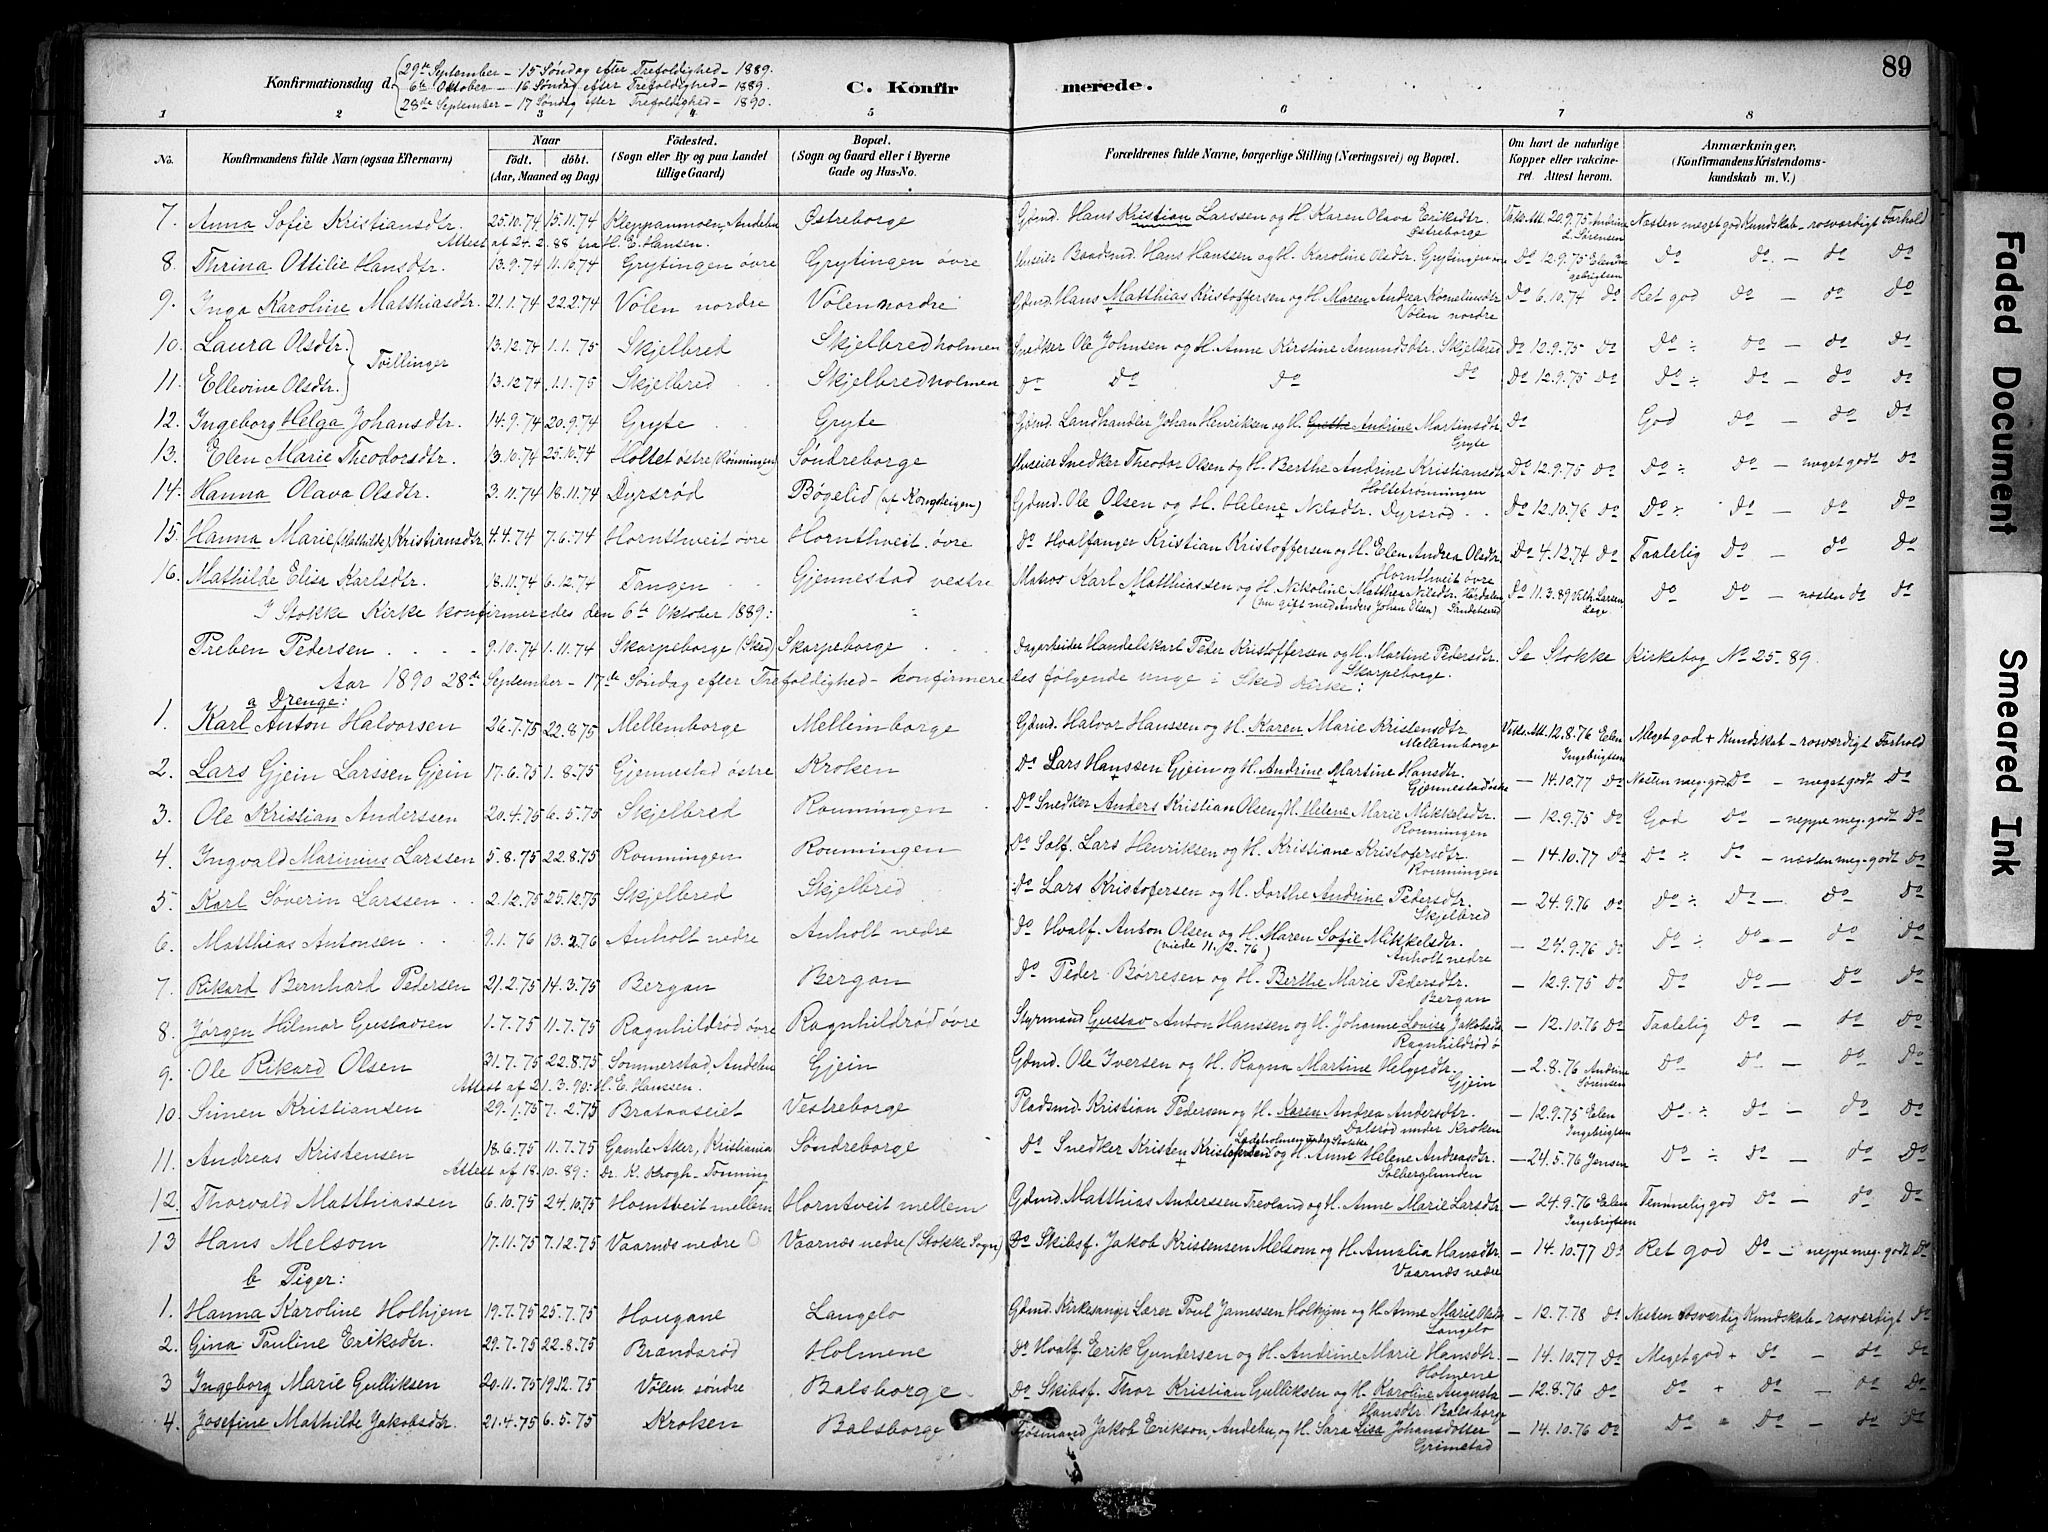 89
Konfirmationsdag d. 29de September - 15 Søndag efter Trefoldighed - 1889.
6te Oktober - 16 Søndag efter Trefoldighed - 1889.
28de September - 17 Søndag efter Trefoldighed - 1890.
C. Konfirmerede.
1 2 3 4 5 6 7 8
No. Konfirmandens fulde Navn (ogsaa Efternavn) Naar født. døbt. (Aar, Maaned og Dag) Födested. (Sogn eller By og paa Landet tillige Gaard) Bopæl. (Sogn og Gaard eller i Byerne Gade og Hus-No. Forældrenes fulde Navne, borgerlige Stilling (Næringsvei) og Bopæl. Om havt de naturlige Kopper eller vakcineret. Attest herom. Anmærkninger. (Konfirmandens Kristendomskundskab m. V.)
7. Anna Sofie Kristiansdtr. 25.10.74 15.11.74 Kleppanmoen, Andebu Østreborge Gdmd. Hans Kristian Larssen og H. Karen Olava Eriksdtr. Østreborge Vakc. Att. 20.9.75 Andrine L. Sørensen Næsten meget god Kundskab - rosværdigt Forhold
Attest af 24.2.88 fra H. E. Hansen.
8. Thrina Ottilie Hansdtr. 13.9.74 11.10.74 Grytingen øvre Grytingen øvre Huseier Baadsmd. Hans Hanssen og H. Karoline Olsdtr. Grytingen Do 12.9.75 Elen Ingebrigtsen Do Do - do Do
9. Inga Karoline Matthiasdtr. 21.1.74 22.2.74 Vølen nordre Vølen nordre Gdmd. Hans Matthias Kristoffersen og H. Maren Andrea Korneliusdtr Vølen nordre Do 6.10.74 Do Ret god Do - do Do
10. Laura Olsdtr. } Tvillinger 13.12.74 1.1.75 Skjelbred Skjelbredholmen Snedker Ole Johnsen og H. Anne Kirstine Amundsdtr. Skjelbred Do 12.9.75 Do Do ÷ Do - do Do
11. Ellevine Olsdtr. 13.12.74 1.1.75 Skjelbred Skjelbredholmen Do Do Do Do Do 12.9.75 Do Do ÷ Do - do Do
12. Ingeborg Helga Johansdtr. 14.9.74 20.9.74 Gryte Gryte Gdmd. Landhandler Johan Henriksen og H. Grethe Andrine Martinsdtr. Gryte Do God Do - do Do
13. Elen Marie Theodorsdtr. 13.10.74 25.10.74 Holtet østre (Rønningen) Søndreborge Huseier Snedker Theodor Olsen og H. Berthe Andrine Kristiansdtr Holtetrønningen Do 12.9.75 Do Do ÷ Do - meget godt Do
14. Hanna Olava Olsdtr. 3.11.74 18.11.74 Dyrsrød Bøgelid (af Kongsteigen) Gdmd. Ole Olsen og H. Helene Nilsdtr. Dyrsrød Do 12.10.76 Do Do ÷ Do - do Do
15. Hanna Marie (Mathilde) Kristiansdtr. 4.4.74 7.6.74 Hornthveit øvre Hornthveit øvre Do Hvalfanger Kristian Kristoffersen og H. Elen Andrea Olsdtr. Hornthveit øvre Do 4.12.74 Do Taalelig Do - do Do
16. Mathilde Elise Karlsdtr. 18.11.74 6.12.74 Tangen Gjennestad vestre Matros Karl Matthiassen og H. Nikoline Matthea Nilsdtr. Hasdalen (nu gift med Anders Johan Olsen) Sandeherred Do 11.3.89 Vilh. Larsen, Læge. Do Do - næsten do Do
I Stokke Kirke konfirmeredes den 6te Oktober 1889:
Preben Pedersen 9.10.74 1.11.74 Skarpeborge (Sked) Skarpeborge Dagarbeider Handelskarl Peder Kristoffersen og H. Martine Pedersdtr. Skarpeborge. Se Stokke Kirkebog No 25-89.
Aar 1890 28de September - 17de Søndag efter Trefoldighed - konfirmeredes følgende unge i Sked Kirke:
a Drenge:
1. Karl Anton Halvorsen 26.7.75 22.8.75 Mellemborge Mellemborge Gdmd. Halvor Hanssen og H. Karen Marie Kristensdtr. Mellemborge Vakc. Att. 12.8.76 Elen Ingebrigtsen Meget god + Kundskab - rosværdigt Forhold
2. Lars Gjein Larssen Gjein 17.6.75 1.8.75 Gjennestad østre Kroken Do Lars Hanssen Gjein og H. Andrine Martine Hansdtr. Gjennestad østre - 14.10.77 Do Næsten meg. god Do - meget godt Do
3. Ole Kristian Anderssen 20.4.75 6.5.75 Skjelbred Rønningen Do Snedker Anders Kristian Olsen, H. Helene Marie Mikkelsdtr. Rønningen - 12.9.75 Do God Do - neppe meg. godt Do
4. Ingvald Marinius Larssen 5.8.75 22.8.75 Rønningen Rønningen Do Solf. Lars Henriksen og H. Kristiane Kristofersdtr. Rønningen - 14.10.77 Do Do ÷ Do - næsten meg. godt Do
5. Karl Søverin Larssen 2.12.75 25.12.75 Skjelbred Skjelbred Do Lars Kristofersen og H. Dorthe Andrine Pedersdtr. Skjelbred - 24.9.76 Do Do ÷ Do - do Do
6. Matthias Antonsen 9.1.76 13.2.76 Anholt nedre Anholt nedre Do Hvalf. Anton Olsen og H. Maren Sofie Mikkelsdtr. (viede 11./2.76) Anholt nedre - 24.9.76 Do Do ÷ Do - do Do
7. Rikard Bernhard Pedersen 21.2.75 14.3.75 Bergan Bergan Do Peder Børresen og H. Berthe Marie Pedersdtr. Bergan - 12.9.75 Do Do Do - Do Do
8. Jørgen Hilmar Gustavsen 1.7.75 11.7.75 Ragnhildrød øvre Ragnhildrød øvre Styrmand Gustav Anton Hanssen og H. Johanne Lovise Jakobsdtr Ragnhildrød ø - 12.10.76 Do Taalelig Do - do Do
9. Ole Rikard Olsen 31.7.75 22.8.75 Sommerstad, Andebu Gjein Gdmd. Ole Iversen og H. Ragna Martine Helgesdtr. Gjein - 2.8.76 Andrine Sørensen Do Do - do Do
Attest af 21.3.90: H. E. Hanssen.
10. Simen Kristiansen 29.1.75 7.2.75 Brataaseiet Vestreborge Pladsmd. Kristian Pedersen og H. Karen Andrea Andersdtr. Dalsrød under Kroken - 12.9.75 Elen Ingebrigtsen Do ÷ Do - do Do
11. Andreas Kristensen 18.6.75 11.7.75 Gamle Aker, Kristiania Søndreborge Do Snedker Kristen Kristofersen og H. Anne Helene Andreasdtr. Solberglunden - 24.5.76 Jensen Do ÷ Do - do Do
Attest af 18.10.89: Dr. K. Krogh-Tonning
12. Thorvald Matthiassen 6.10.75 24.10.75 Horntveit mellem Horntveit mellem Gdmd. Matthias Anderssen Trevland og H. Anne Marie Larsdtr. - 24.9.76 Elen Ingebrigtsen Temmelig god Do - do Do
13 Hans Melsom 17.11.75 7.12.75 Vaarnæs nedre Vaarnæs nedre (Stokke Sogn) Do Skibsf. Jakob Kristensen Melsom og H. Amalia Hansdtr. Vaarnæs nedre - 14.10.77 Do Ret god Do - neppe meg. godt Do
b Piger:
1. Hanna Karoline Holhjem 19.7.75 25.7.75 Hougane Langelo Gdmd. Kirkesanger Lærer Poul Jamessen Holhjem og H. Anne Marie Olsdtr Langelo - 12.7.78 Do Næsten rosværdig Kundskab - rosværdigt Do
2. Gina Pauline Eriksdtr. 29.7.75 22.8.75 Brandsrød Holmene Do Hvalf. Erik Gundersen og H. Andrine Marie Hansdtr. Holmene - 14.10.77 Do Meget god + Do - do Do
3 Ingeborg Marie Gulliksen 20.11.75 19.12.75 Vølen søndre Balsborge Do Skibsf. Thor Kristian Gulliksen og H. Karoline Augusta Hansdtr Balsborge - 12.8.76 Do Do + Do - do Do
4. Josefine Mathilde Jakobsdtr. 21.4.75 6.5.75 Kroken Balsborge Jakob Erikson, Andebu, og H. Sara Lisa Johansdotter Grimestad - 14.10.76 Do Do Do - do Do
Faded Document
Smeared Ink